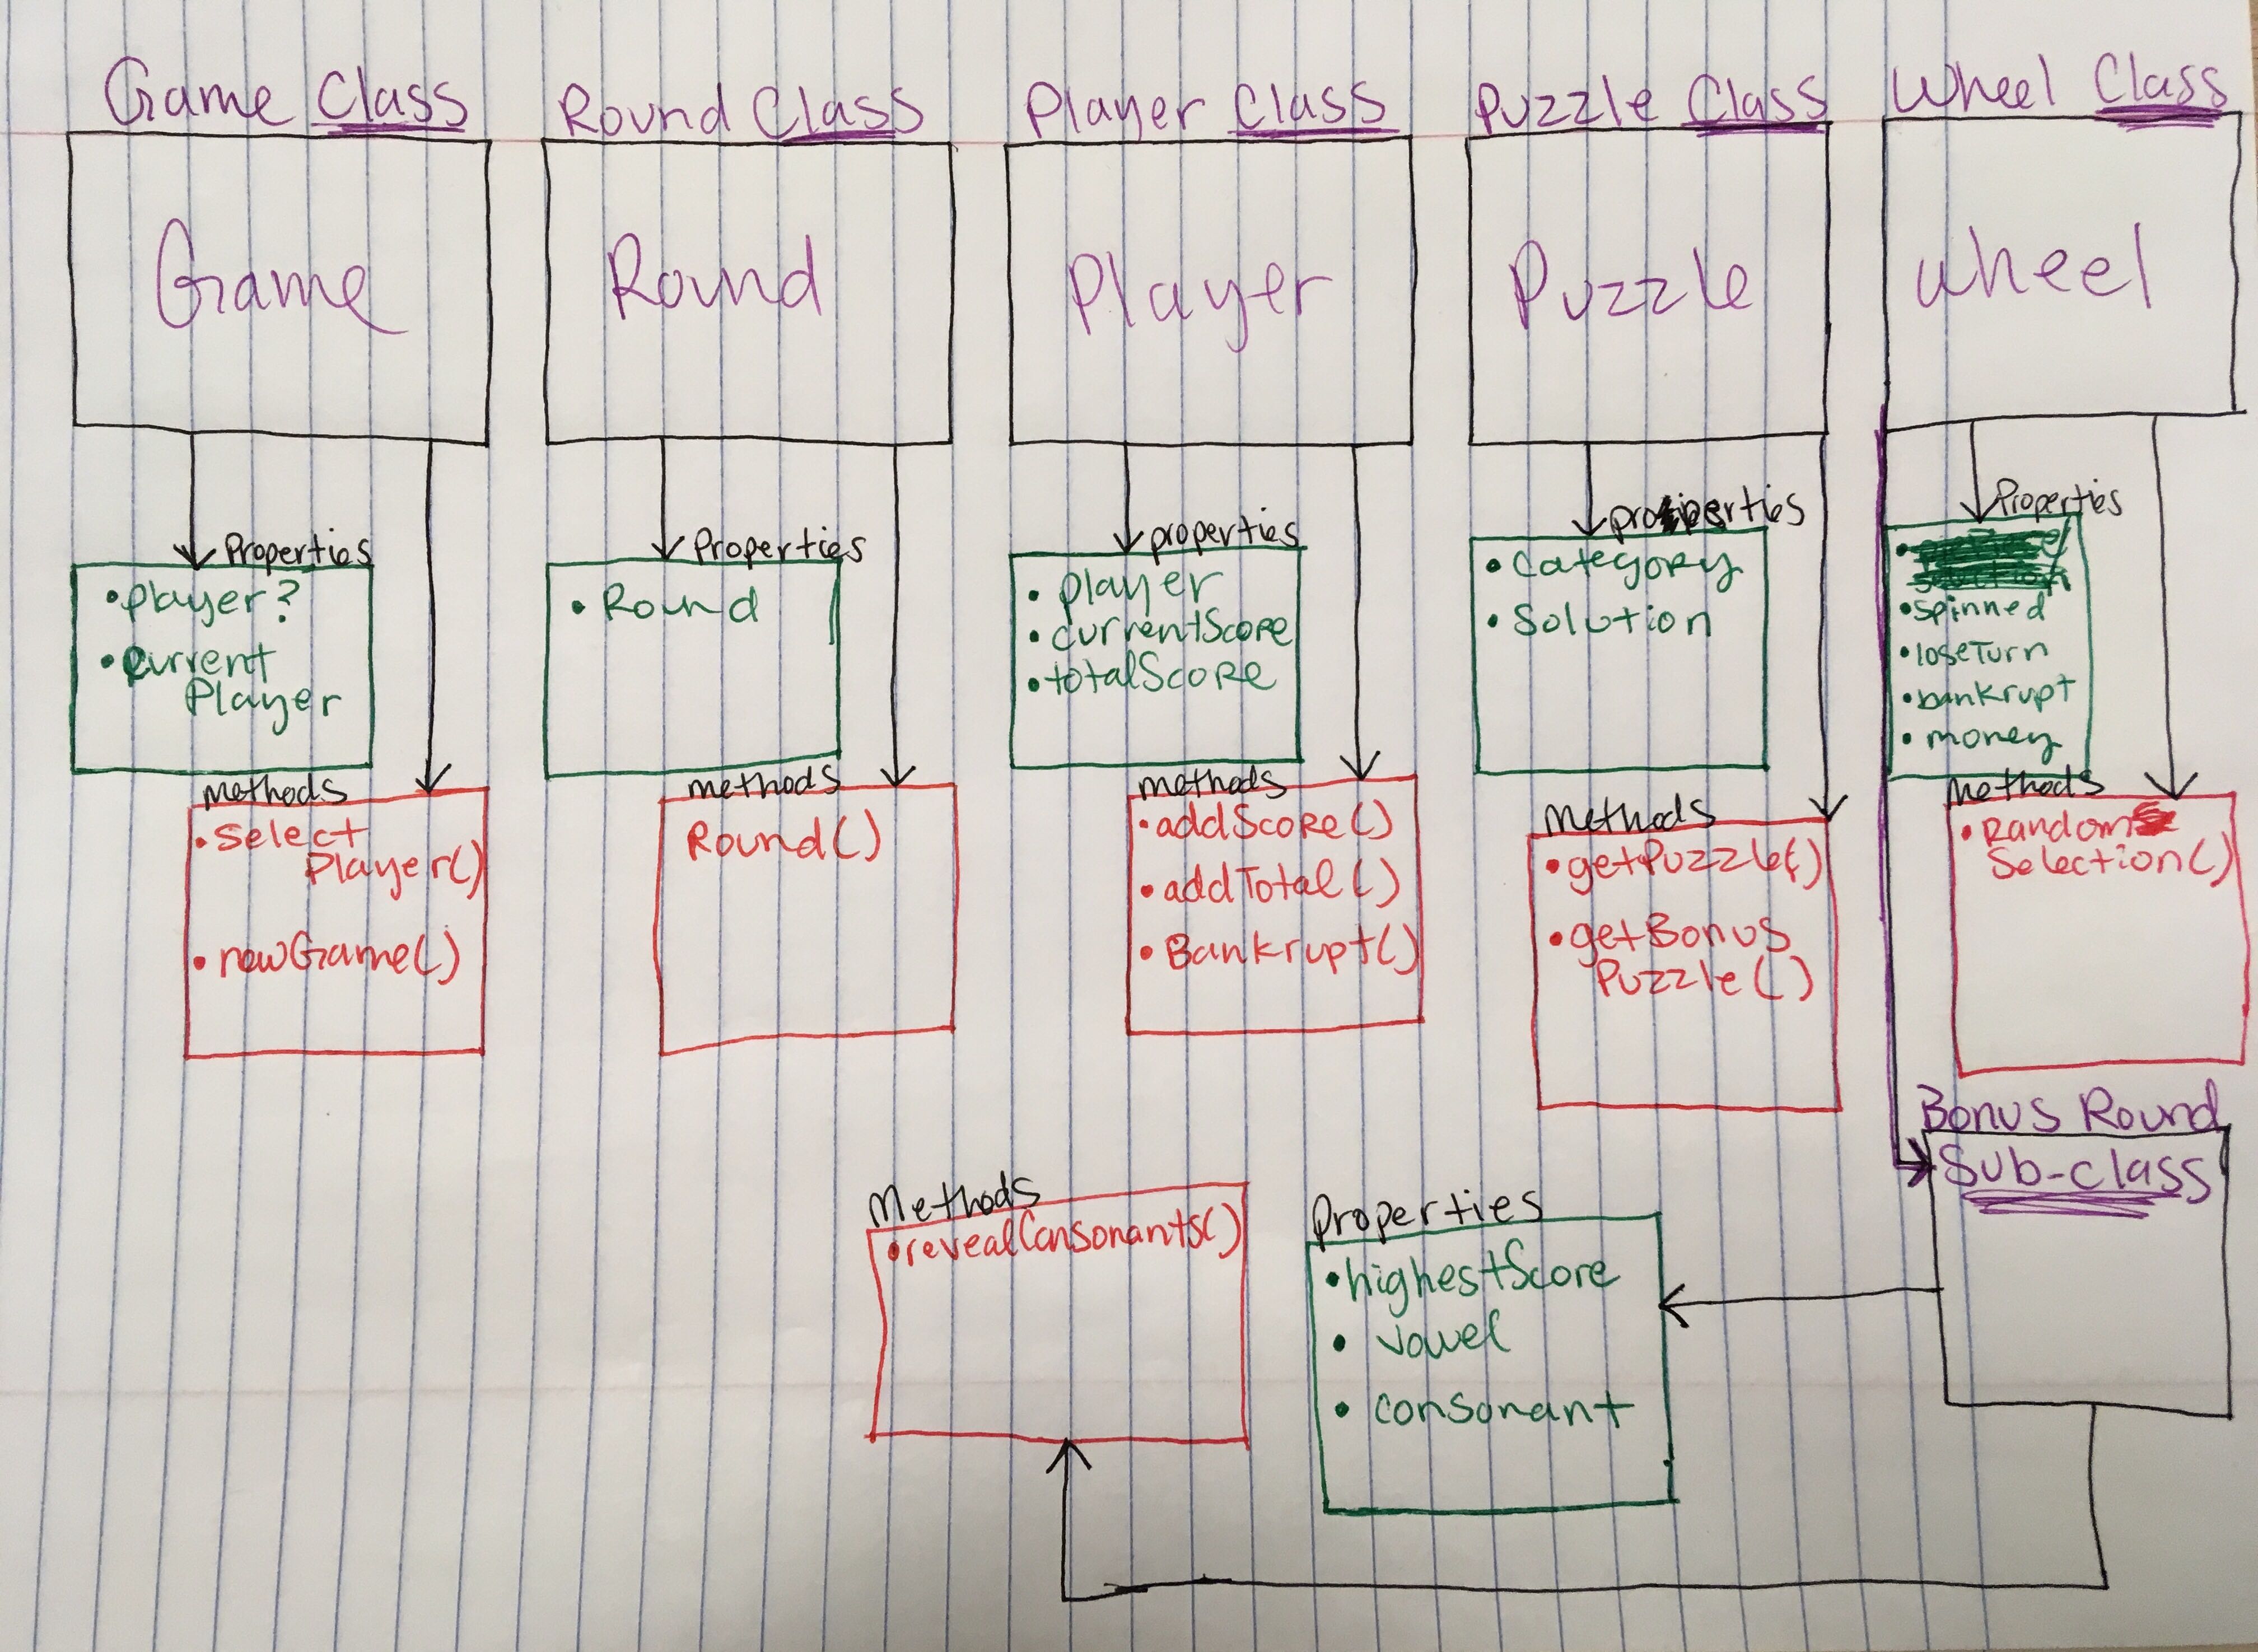 Game Class
Game
Properties
• player?
• current
Player
methods
• select
Player()
• newGame()
Round Class
Round
Properties
• Round
methods
Round()
Player Class
Player
properties
• player
• currentScore
• totalScore
methods
• addScore()
• addTotal()
• Bankrupt()
Puzzle Class
Puzzle
properties
• Category
• Solution
Methods
• getPuzzle()
• getBonus
Puzzle()
Wheel Class
wheel
Properties
• spinned
• loseTurn
• bankrupt
• money
methods
• Random
Selection()
Bonus Round
Sub-class
Properties
• highestScore
• vowel
• consonant
Methods
• revealConsonants()